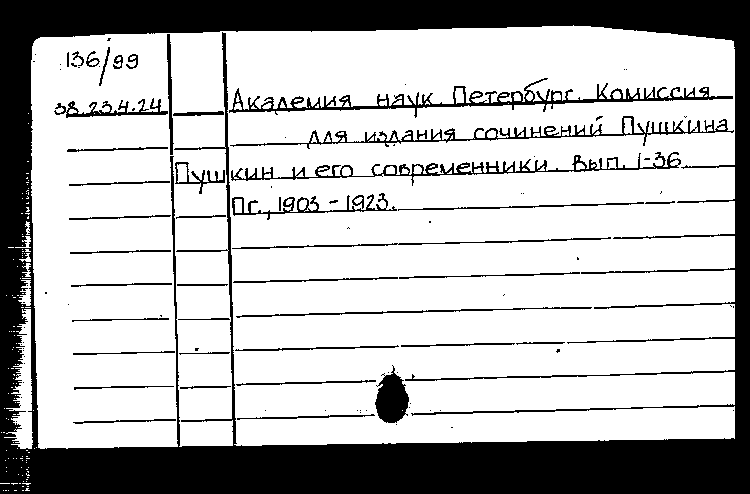 136/99
38.23.4.24 Академия наук. Петербург. Комиссия
для издания сочинений Пушкина
Пушкин и его современники. Вып. 1-36
Пг., 1903 - 1923.